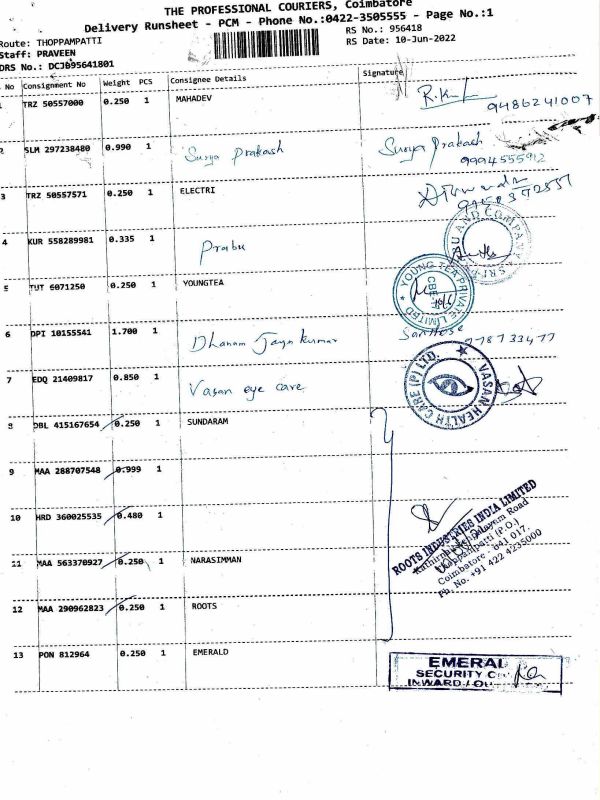 THE PROFESSIONAL COURIERS, Coimbatore
Delivery Runsheet - PCM - Phone No.:0422-3505555 - Page No.:1
Route: THOPPAMPATTI
RS No.: 956418
Staff: PRAVEEN
RS Date: 10-Jun-2022
DRS No.: DCJB95641801
No Consignment No Weight PCS Consignee Details Signature
TRZ 50557000 0.250 1 MAHADEV
9486241007
2 SLM 297238480 0.990 1 Surya Prakash Surya Prakash
9994555912
3 TRZ 50557571 0.250 1 ELECTRI
4 KUR 558289981 0.335 1 Prabu
U AND COMPANY
5 TUT 6071250 0.250 1 YOUNGTEA
YOUNG TEA PRIVATE LIMITED
CBE
6 DPI 10155541 1.700 1 Dhanam Jayakumar
7 EDQ 21409817 0.850 1 Vasan eye care
VASAN HEALTH CARE (P) LTD.
8 DBL 415167654 0.250 1 SUNDARAM
9 MAA 288707548 0.999 1
10 HRD 360025535 0.480 1
ROOTS INDUSTRIES INDIA LIMITED
Road
Thoppampatti (P.O.)
Coimbatore - 641 017.
Ph. No. +91 422 4235000
11 MAA 563370927 0.250 1 NARASIMMAN
12 MAA 290962823 0.250 1 ROOTS
13 PON 812964 0.250 1 EMERALD
EMERAL
SECURITY
INWARD / OU